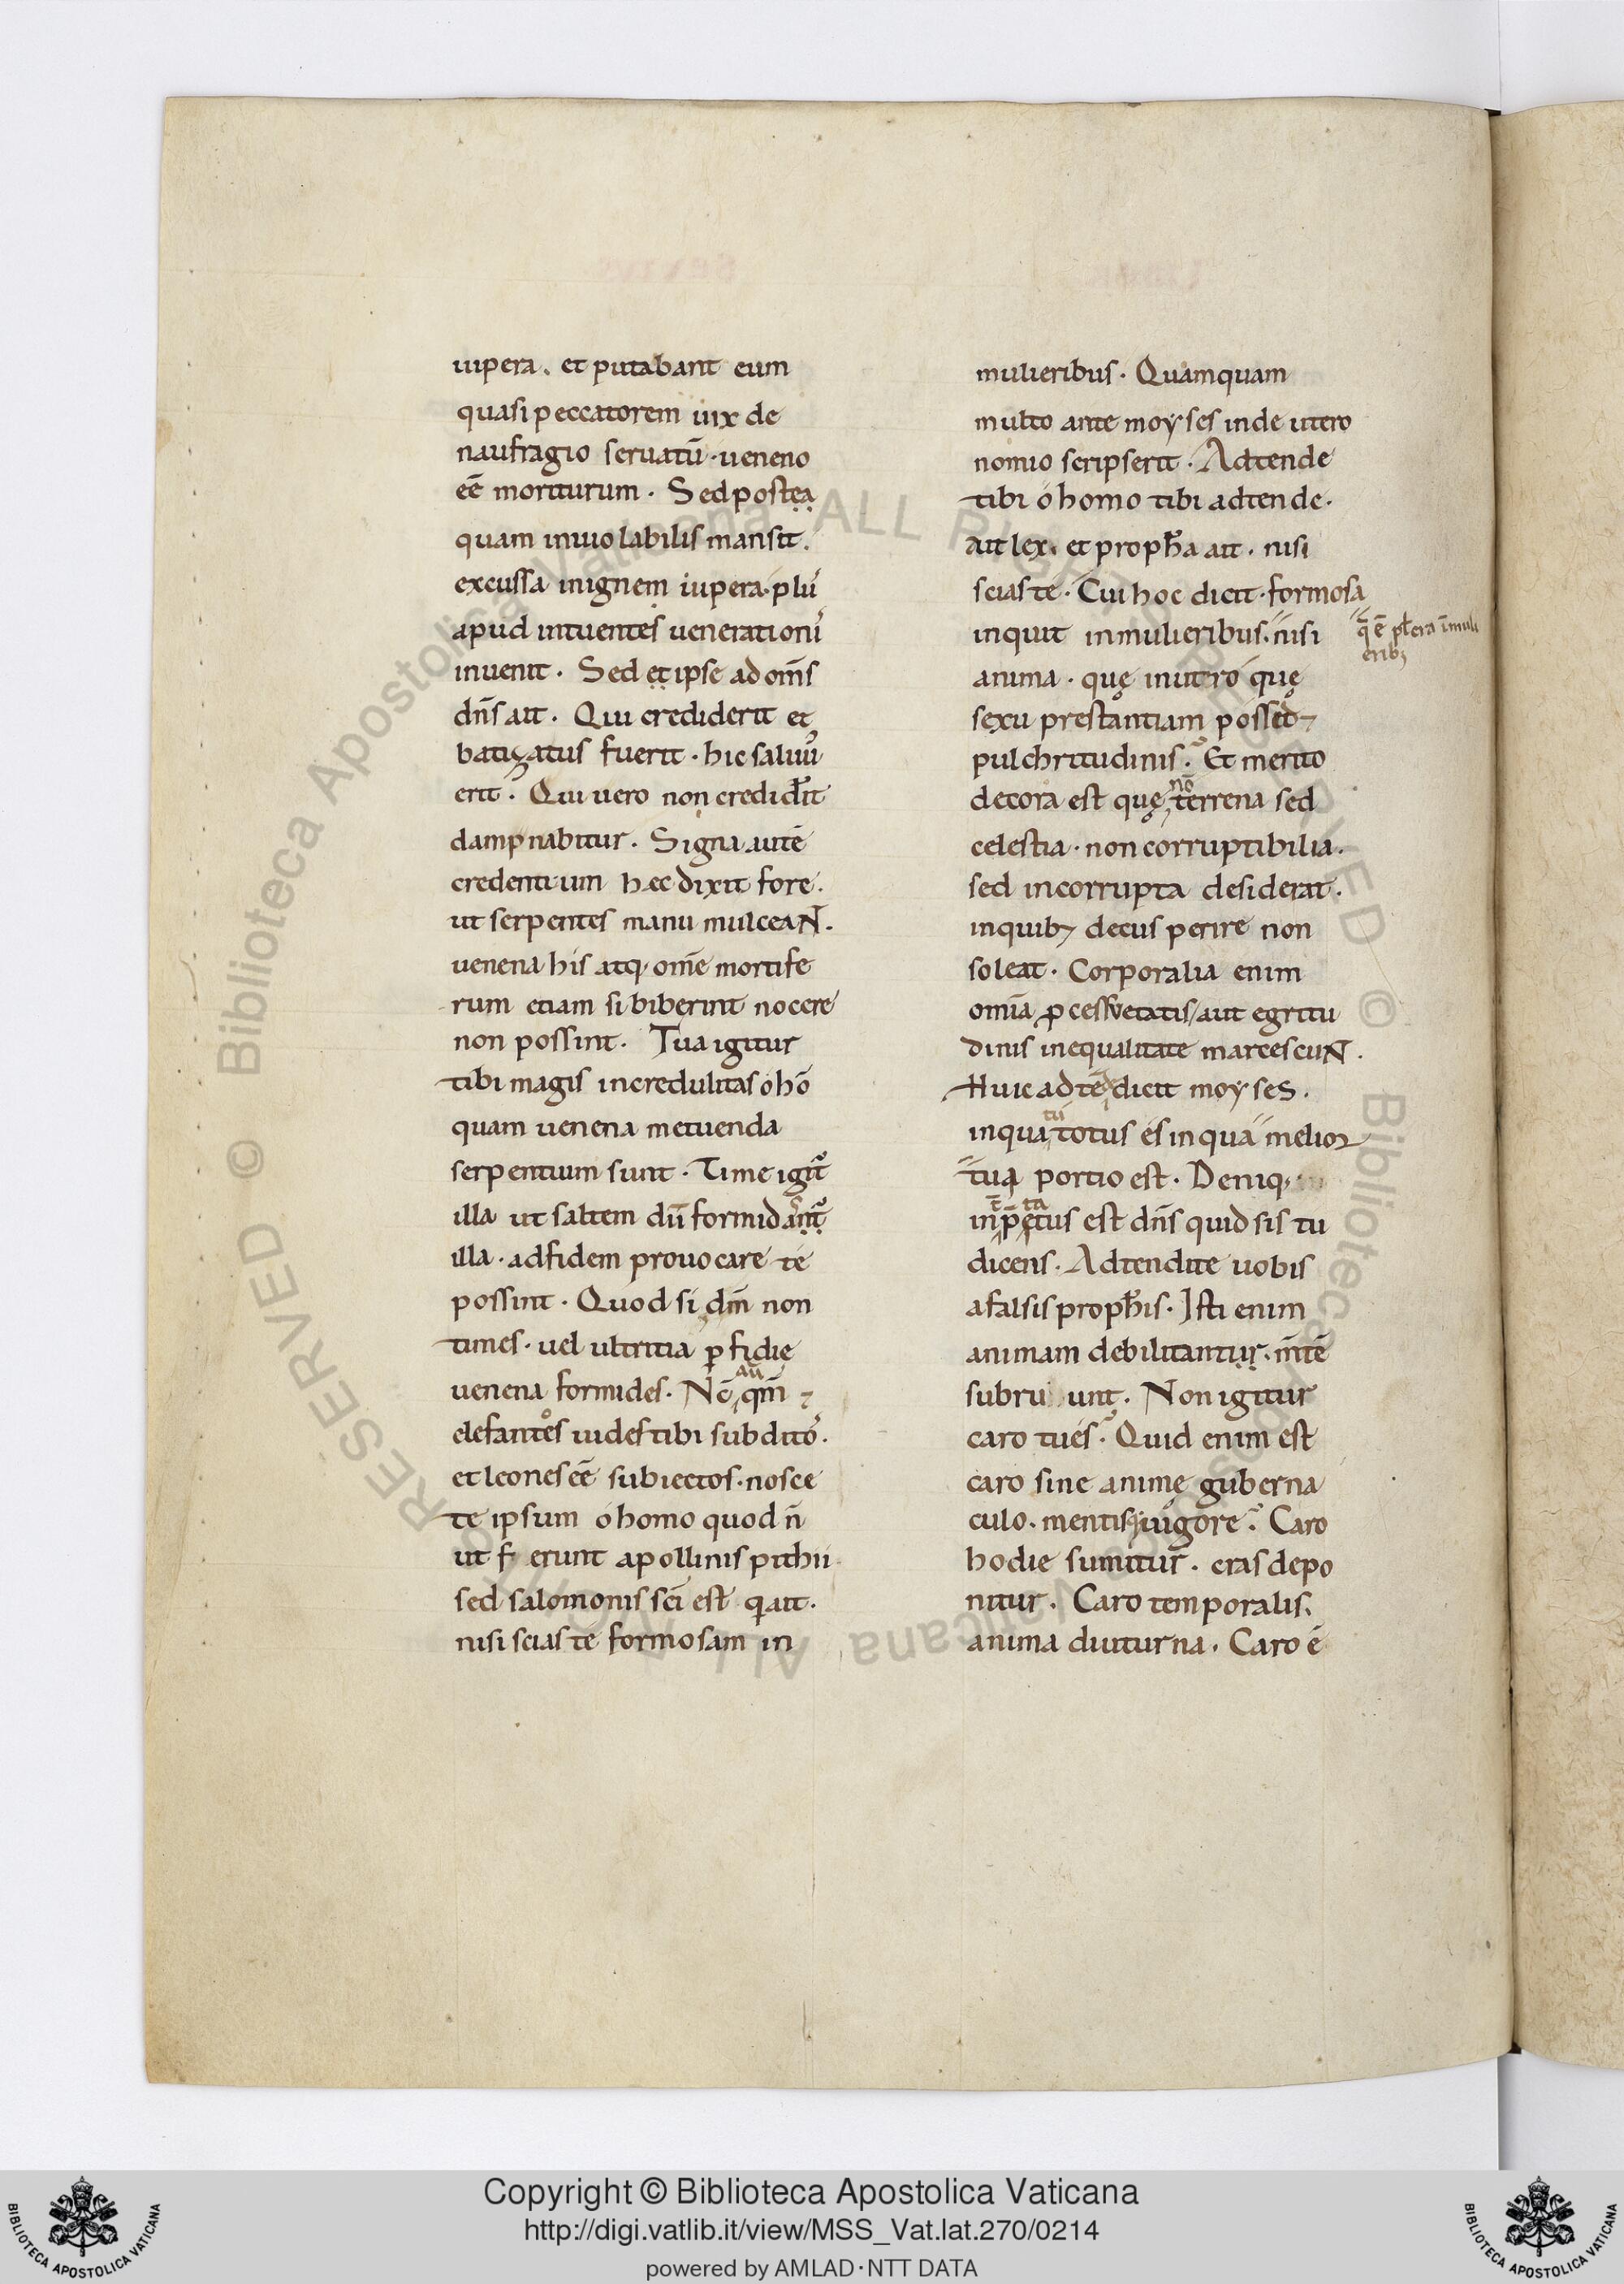 uipera. et putabant eum
quasi peccatorem uix de
naufragio seruatū · ueneno
eē moriturum · Sed postea
quam inuiolabilis mansit.
excussa inignem uipera · plus
apud intuentes uenerationis
inuenit · Sed et ipse ad om̄s
dn̄s ait · Qui crediderit et
batizatus fuerit · hic saluus
erit · Qui uero non credid̄it
dampnabitur · Signa autē
credentium hec dixit fore ·
ut serpentes manu mulceaNT ·
uenena his atq; om̄e mortife
rum etiam si biberint nocere
non possint · Tua igitur
tibi magis incredulitas o hō
quam uenena metuenda
serpentium sunt · Time igit᷑
illa ut saltem dū formidant᷑
illa · adfidem prouocare te
possint · Quod si dm̄ non
times · uel ultritia ꝑfidie
uenena formides · Nō aū qm̄
elefantes uides tibi subditos ·
et leones eē subiectos · nosce
te ipsum o homo quod n̄
ut f erunt apollinis pithii
sed salomonis sc̄i est q̇ ait ·
nisi scias te formosam in
mulieribus · Quamquam
multo ante moyses inde utero
nomio scripserit · Adtende
tibi o homo tibi adtende ·
ait lex · et proph̄a ait · nisi
scias te · Cui hoc dicit · formosa
inquit inmulieribus · nisi
q̄ ē pl̄cra ī muli
erib;
anima · quę inutro que
sexu prestantiam possed;
pulchritudinis · Et merito
decora est quę nō terrena sed
celestia · non corruptibilia ·
sed incorrupta desiderat ·
inquib; decus perire non
soleat · Corporalia enim
omīa ꝓcessu etatis / aut egritu
dinis inequalitate marcescuNT ·
Huic adtēde dicit moyses ·
inqua tu totus es in qua melior
tua portio est · Deniq;
inp̄etus est dn̄s quid sis tu
dicens · Adtendite uobis
afalsis proph̄is · Isti enim
animam debilitantur · m̄tē
subru unt · Non igitur
caro tu es · Quid enim est
caro sine animę guberna
culo · mentisq; uigore · Caro
hodie sumitur · cras depo
nitur · Caro temporalis ·
anima diuturna · Caro ē
Copyright © Biblioteca Apostolica Vaticana
http://digi.vatlib.it/view/MSS_Vat.lat.270/0214
powered by AMLAD · NTT DATA
BIBLIOTECA APOSTOLICA VATICANA
BIBLIOTECA APOSTOLICA VATICANA